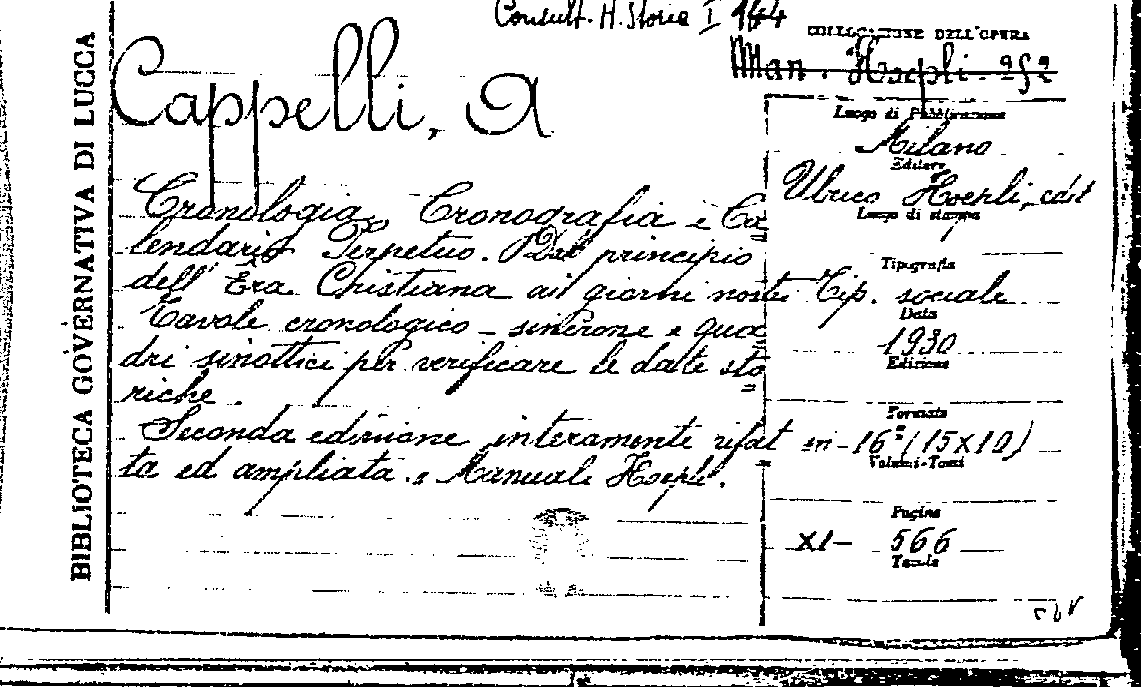 Consult. H. Storia I 144
COLLOCAZIONE DELL'OPERA
Man. Hoepli. 252
BIBLIOTECA GOVERNATIVA DI LUCCA
Cappelli, A
Cronologia, Cronografia e Ca
lendario Perpetuo. Dal principio
dell' Era Cristiana ai giorni nostri
Tavole cronologico - sincrone e qua
dri sinottici per verificare le date sto
riche.
Seconda edizione interamente rifat
ta ed ampliata. Manuale Hoepli.
Luogo di Pubblicazione
Milano
Editore
Ulrico Hoepli, edit
Luogo di stampa
Tipografia
Tip. sociale
Data
1930
Edizione
Formato
in-16° (15x10)
Volumi-Tomi
Pagine
XI- 566
Tavole